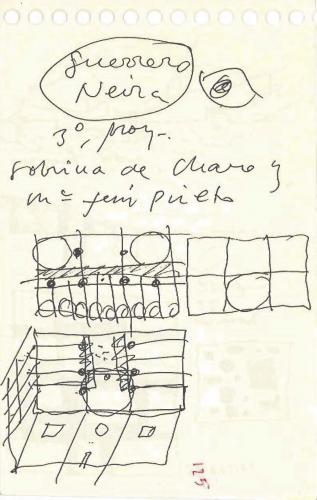 Guerrero
Neira
3º, proy.
sobrina de Charo y
Mª Fern Prieto
125